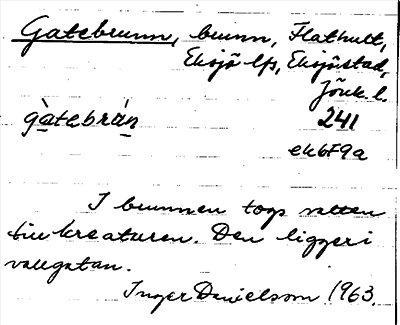 Gatebrunn, brunn, Flathult,
Eksjö lfs, Eksjö stad,
Jönk. l.
gàtebrán 241
ek6f9a
I brunnen togs vatten
till kreaturen. Den ligger i
vallgatan.
Inger Danielsson 1963.